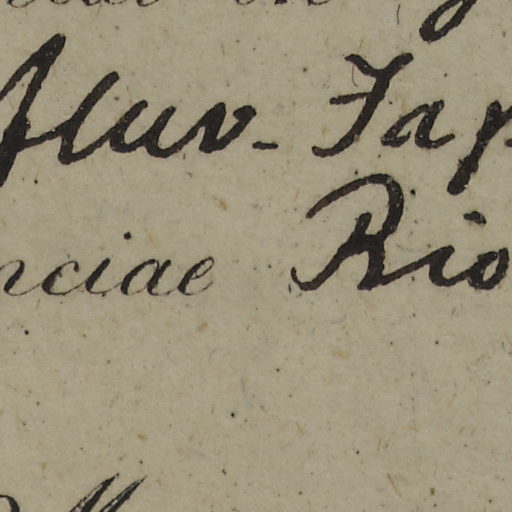 fluv. Jap
nciae Rio